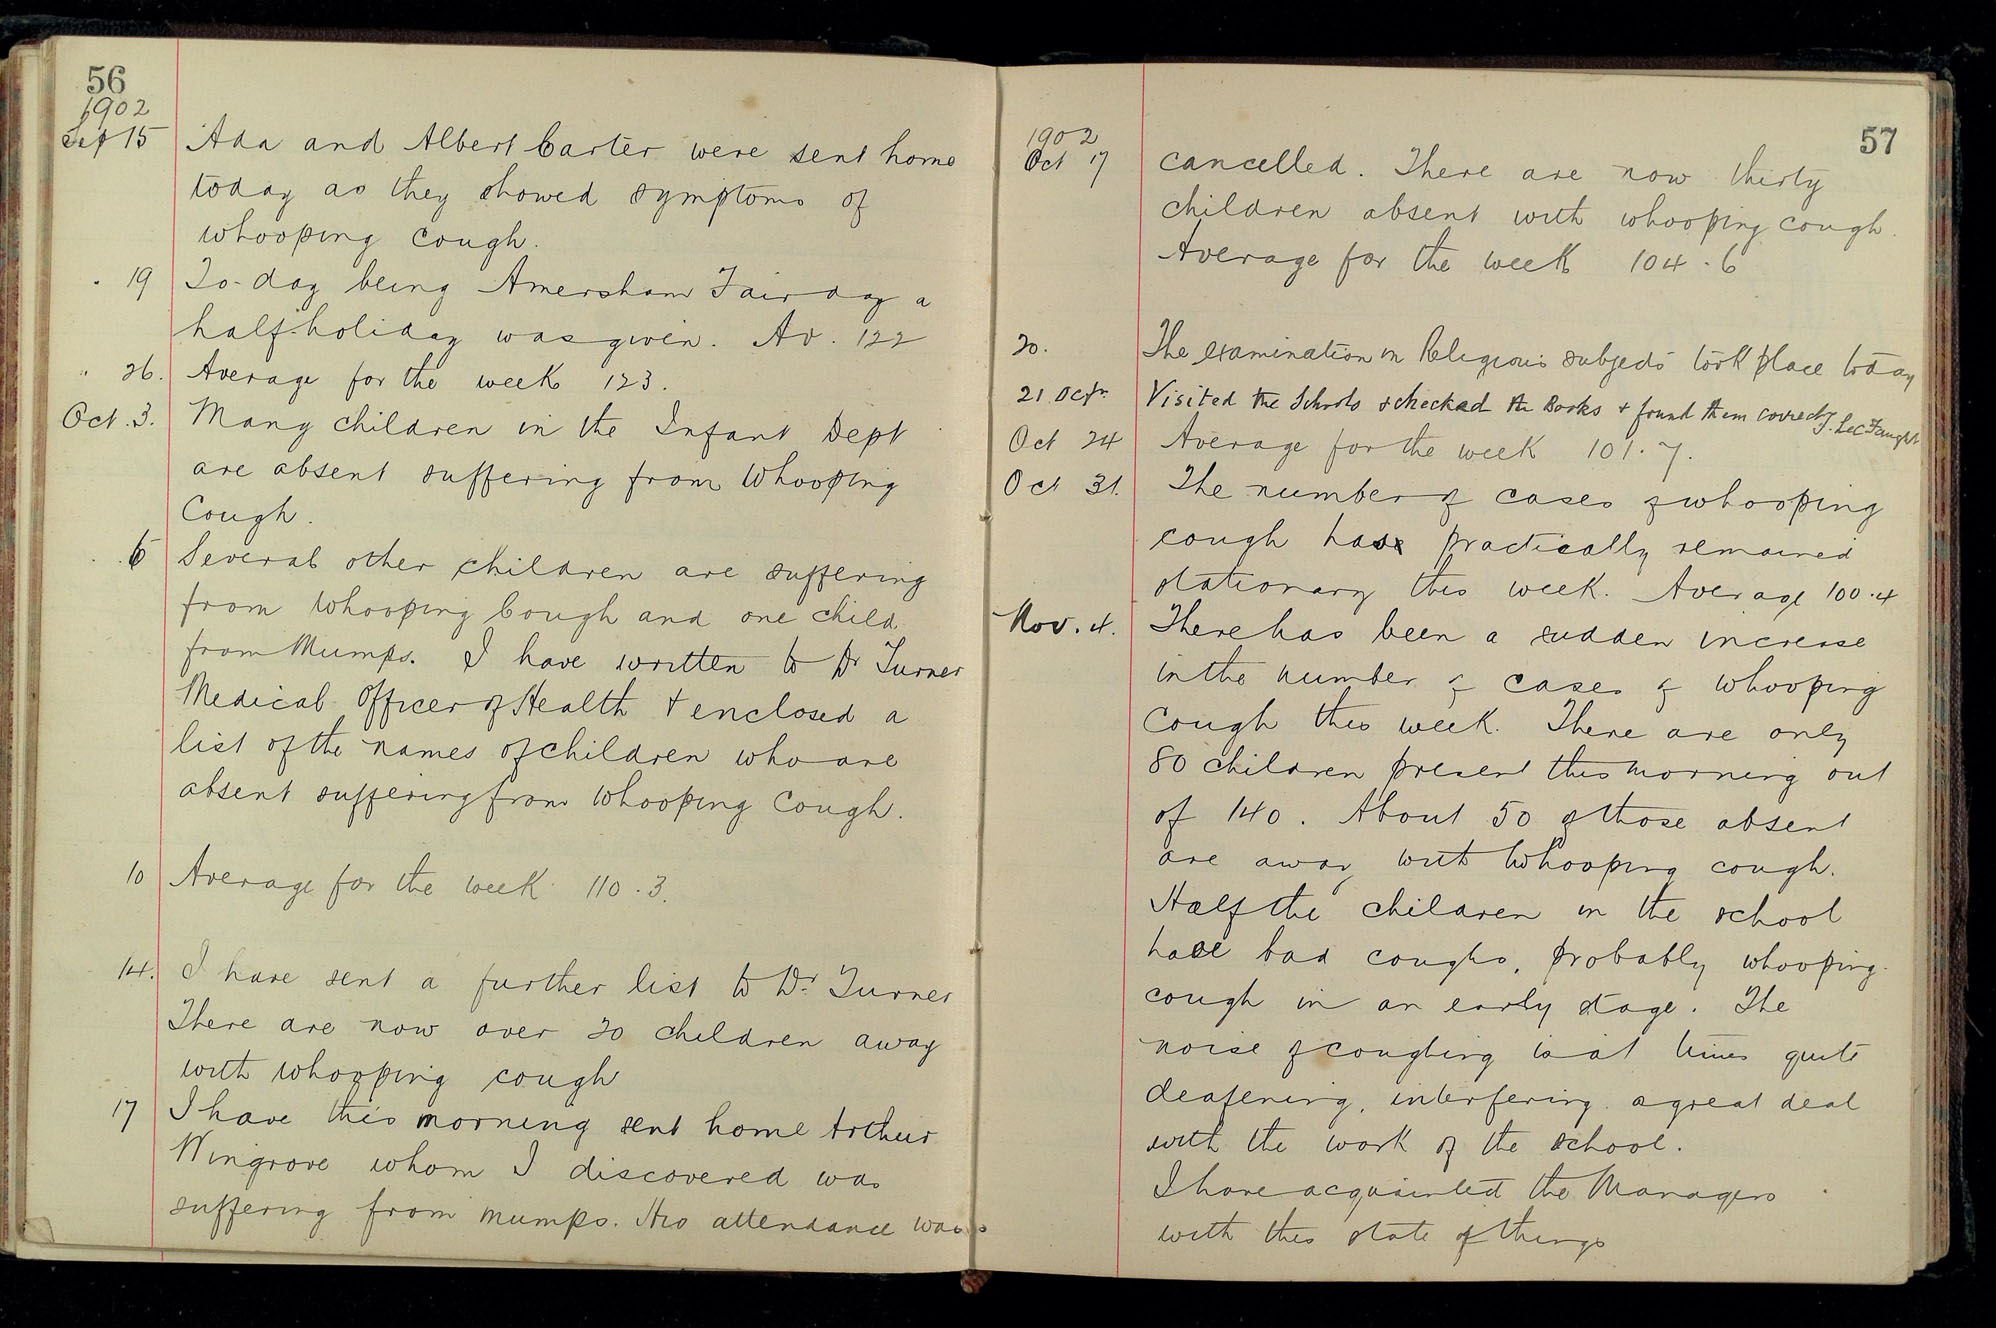 56
1902
Sep 15 Ada and Albert Carter were sent home
today as they showed symptoms of
whooping cough.
" 19 To-day being Amersham Fair day a
half-holiday was given. Av. 122
" 26. Average for the week 123.
Oct. 3. Many children in the Infant Dept
are absent suffering from Whooping
Cough.
" 6 Several other children are suffering
from Whooping Cough and one child
from Mumps. I have written to Dr Turner
Medical Officer of Health & enclosed a
list of the names of children who are
absent suffering from Whooping Cough.
10 Average for the week 110.3.
14. I have sent a further list to Dr. Turner
There are now over 20 children away
with whooping cough
17 I have this morning sent home Arthur
Wingrove whom I discovered was
suffering from mumps. His attendance was
57
1902
Oct 17 cancelled. There are now thirty
children absent with whooping cough.
Average for the week 104.6
20. The examination in Religious subjects took place today
21 Octr. Visited the Schools & checked the Books & found them correct
Oct 24 Average for the week 101.7.
Oct 31. The number of cases of whooping
cough has practically remained
stationary this week. Average 100.4
Nov. 4. There has been a sudden increase
in the number of cases of whooping
cough this week. There are only
80 children present this morning out
of 140. About 50 of those absent
are away with Whooping cough.
Half the children in the school
have bad coughs, probably whooping
cough in an early stage. The
noise of coughing is at times quite
deafening, interfering a great deal
with the work of the school.
I have acquainted the Managers
with this state of things